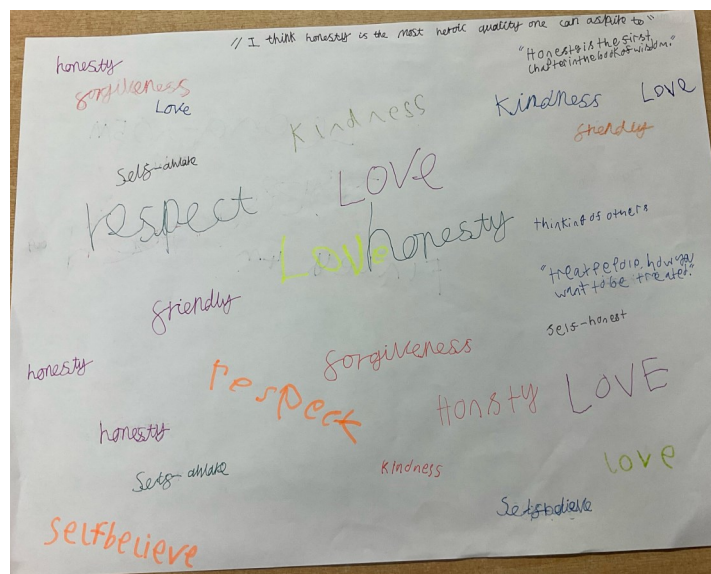 "I think honesty is the most heroic quality one can aspire to"
honesty
"Honesty is the first
chapter in the book of wisdom."
forgiveness
Love
Kindness
Kindness
Love
friendly
self-awake
respect
LOVe
Love
honesty
thinking of others
"treat peldlp, how you
want to be treated."
friendly
self-honest
honesty
forgiveness
respect
Honsty
LOVE
honesty
Self-awake
Kindness
love
Selfbelieve
selfbelieve